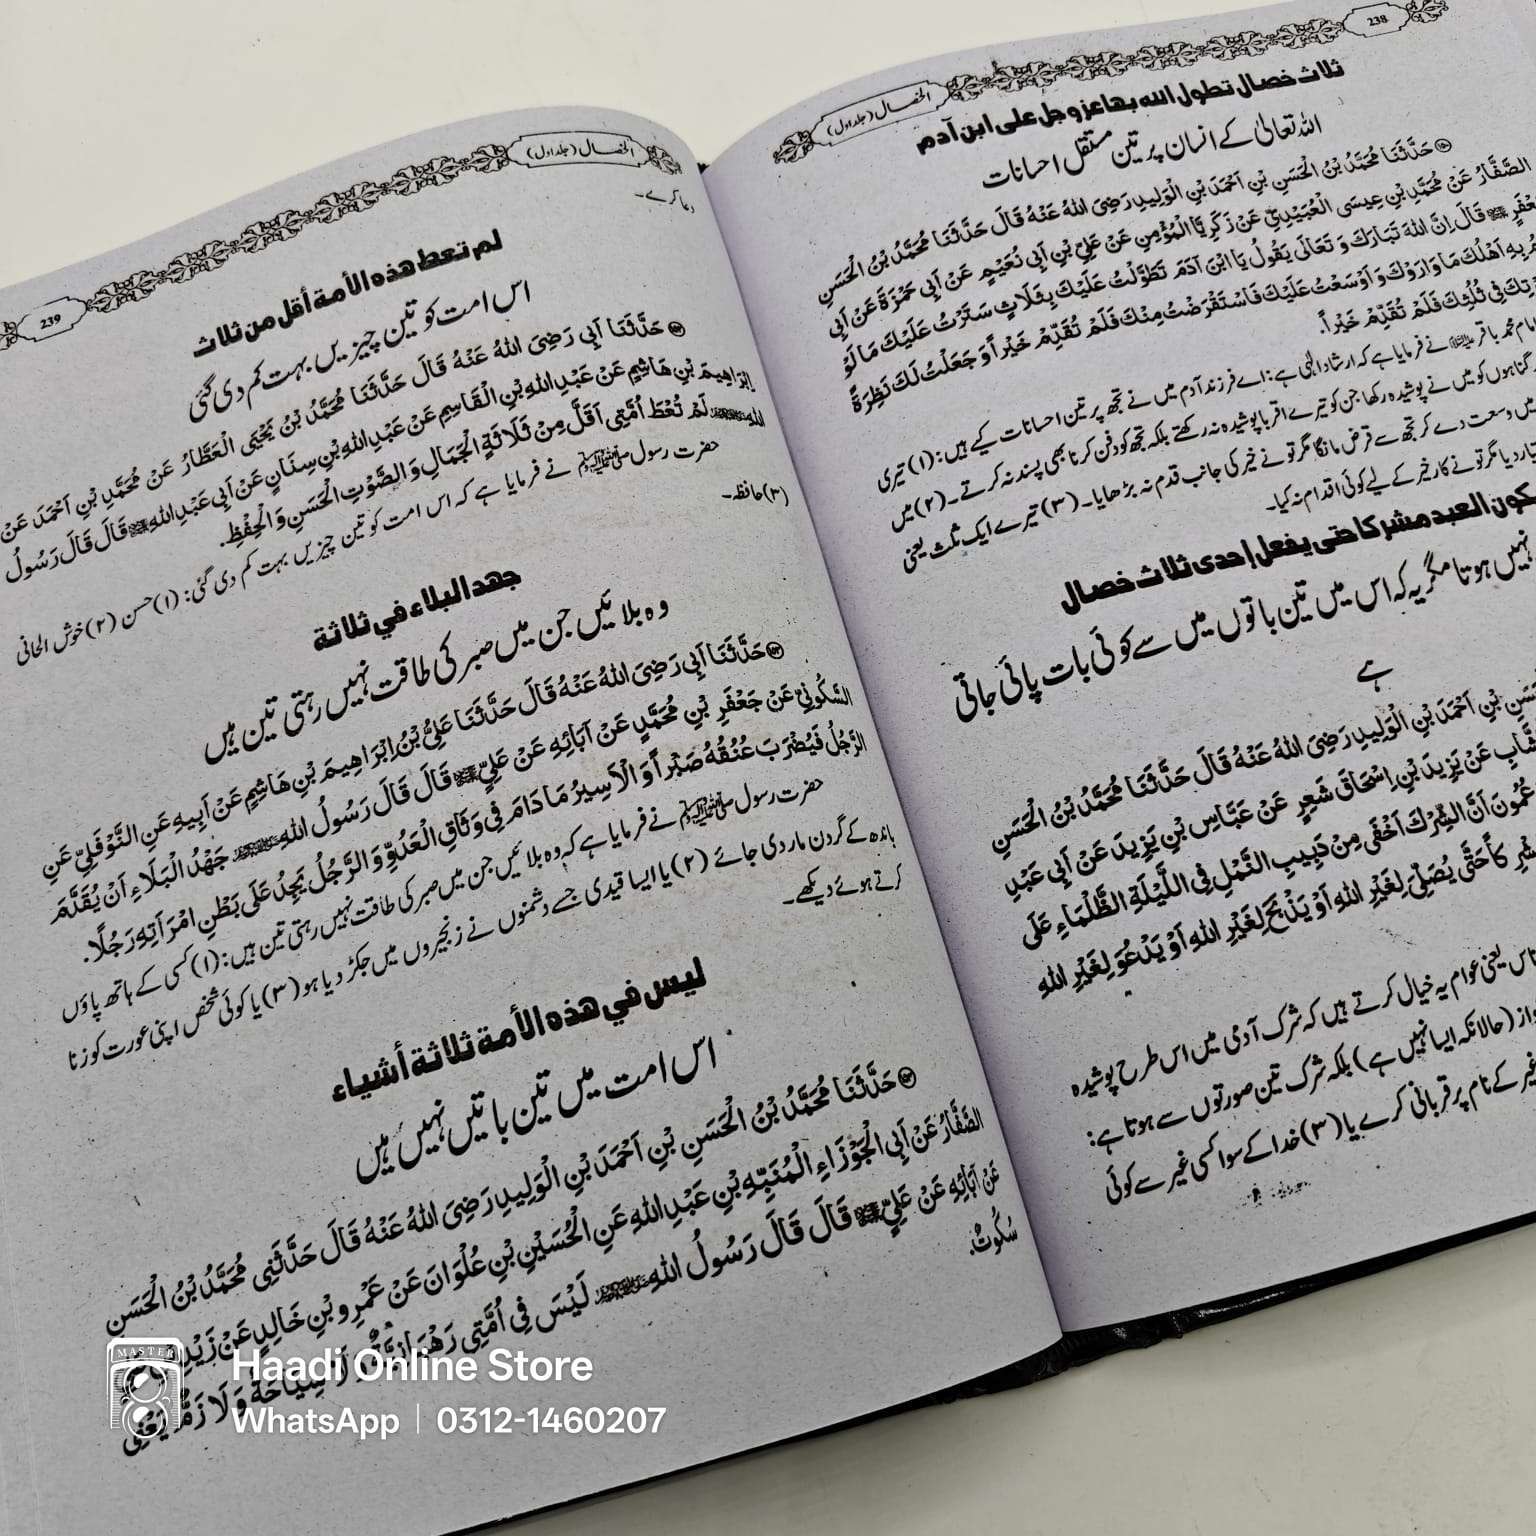 238
الخصال (جلد اول)
ثلاث خصال تطول الله بها عز وجل على ابن آدم
اللہ تعالیٰ کے انسان پر تین مستقل احسانات
حَدَّثَنَا مُحَمَّدُ بْنُ الْحَسَنِ بْنِ اَحْمَدَ بْنِ الْوَلِيدِ رَضِيَ اللهُ عَنْهُ قَالَ حَدَّثَنَا مُحَمَّدُ بْنُ الْحَسَنِ
الصَّفَّارُ عَنْ مُحَمَّدِ بْنِ عِيسَى الْعُبَيْدِيِّ عَنْ زَكَرِيَّا الْمُؤْمِنِ عَنْ عَلِيِّ بْنِ اَبِي نُعَيْمٍ عَنْ اَبِي حَمْزَةَ عَنْ اَبِي
قَالَ اِنَّ اللهَ تَبَارَكَ وَ تَعَالَى يَقُولُ يَا ابْنَ آدَمَ تَطَوَّلْتُ عَلَيْكَ بِثَلَاثٍ سَتَرْتُ عَلَيْكَ مَا لَوْ
بِهِ اَهْلُكَ مَا وَارَوْكَ وَ اَوْسَعْتُ عَلَيْكَ فَاسْتَقْرَضْتُ مِنْكَ فَلَمْ تُقَدِّمْ خَيْراً وَ جَعَلْتُ لَكَ نَظِرَةً
فِي ثُلُثِكَ فَلَمْ تُقَدِّمْ خَيْراً.
امام محمد باقر نے فرمایا ہے کہ ارشاد الٰہی ہے: اے فرزند آدم میں نے تجھ پر تین احسانات کیے ہیں: (۱) تیری
گناہوں کو میں نے پوشیدہ رکھا جن کو تیرے اقربا پوشیدہ نہ رکھتے بلکہ تجھ کو دفن کرنا بھی پسند نہ کرتے۔ (۲) میں
میں وسعت دے کر تجھ سے قرض مانگا مگر تو نے خیر کی جانب قدم نہ بڑھایا۔ (۳) تیرے ایک ثلث یعنی
مگر تو نے کار خیر کے لیے کوئی اقدام نہ کیا۔
العبد مشركا حتى يفعل إحدى ثلاث خصال
نہیں ہوتا مگر یہ کہ اس میں تین باتوں میں سے کوئی بات پائی جاتی
ہے
بْنِ اَحْمَدَ بْنِ الْوَلِيدِ رَضِيَ اللهُ عَنْهُ قَالَ حَدَّثَنَا مُحَمَّدُ بْنُ الْحَسَنِ
عَنْ يَزِيدَ بْنِ اِسْحَاقَ شَعِرٍ عَنْ عَبَّاسِ بْنِ يَزِيدَ عَنْ اَبِي عَبْدِ
اَنَّ الشِّرْكَ اَخْفَى مِنْ دَبِيبِ النَّمْلِ فِي اللَّيْلَةِ الظَّلْمَاءِ عَلَى
حَتَّى يُصَلِّيَ لِغَيْرِ اللهِ اَوْ يَذْبَحَ لِغَيْرِ اللهِ اَوْ يَدْعُوَ لِغَيْرِ اللهِ
یعنی عوام یہ خیال کرتے ہیں کہ شرک آدمی میں اس طرح پوشیدہ
(حالانکہ ایسا نہیں ہے) بلکہ شرک تین صورتوں سے ہوتا ہے:
غیر کے نام پر قربانی کرے یا (۳) خدا کے سوا کسی غیر سے کوئی
239
الخصال (جلد اول)
دعا کرے۔
لم تعط هذه الأمة أقل من ثلاث
اس امت کو تین چیزیں بہت کم دی گئی
حَدَّثَنَا اَبِي رَضِيَ اللهُ عَنْهُ قَالَ حَدَّثَنَا مُحَمَّدُ بْنُ يَحْيَى الْعَطَّارُ عَنْ مُحَمَّدِ بْنِ اَحْمَدَ عَنْ
اِبْرَاهِيمَ بْنِ هَاشِمٍ عَنْ عَبْدِ اللهِ بْنِ الْقَاسِمِ عَنْ عَبْدِ اللهِ بْنِ سِنَانٍ عَنْ اَبِي عَبْدِ اللهِ قَالَ قَالَ رَسُولُ
اللهِ لَمْ تُعْطَ اُمَّتِي اَقَلَّ مِنْ ثَلَاثَةٍ الْجَمَالِ وَ الصَّوْتِ الْحَسَنِ وَ الْحِفْظِ.
حضرت رسول ﷺ نے فرمایا ہے کہ اس امت کو تین چیزیں بہت کم دی گئی: (۱) حسن (۲) خوش الحانی
(۳) حافظہ۔
جهد البلاء في ثلاثة
وہ بلائیں جن میں صبر کی طاقت نہیں رہتی تین ہیں
حَدَّثَنَا اَبِي رَضِيَ اللهُ عَنْهُ قَالَ حَدَّثَنَا عَلِيُّ بْنُ اِبْرَاهِيمَ بْنِ هَاشِمٍ عَنْ اَبِيهِ عَنِ النَّوْفَلِيِّ عَنِ
السَّكُونِيِّ عَنْ جَعْفَرِ بْنِ مُحَمَّدٍ عَنْ آبَائِهِ عَنْ عَلِيٍّ قَالَ قَالَ رَسُولُ اللهِ جَهْدُ الْبَلَاءِ اَنْ يُقَدَّمَ
الرَّجُلُ فَيُضْرَبَ عُنُقُهُ صَبْراً وَ الْاَسِيرُ مَا دَامَ فِي وَثَاقِ الْعَدُوِّ وَ الرَّجُلُ يَجِدُ عَلَى بَطْنِ امْرَاَتِهِ رَجُلًا.
حضرت رسول ﷺ نے فرمایا ہے کہ وہ بلائیں جن میں صبر کی طاقت نہیں رہتی تین ہیں: (۱) کسی کے ہاتھ پاؤں
باندھ کے گردن مار دی جائے (۲) یا ایسا قیدی جسے دشمنوں نے زنجیروں میں جکڑ دیا ہو (۳) یا کوئی شخص اپنی عورت کو زنا
کرتے ہوئے دیکھے۔
ليس في هذه الأمة ثلاثة أشياء
اس امت میں تین باتیں نہیں ہیں
حَدَّثَنَا مُحَمَّدُ بْنُ الْحَسَنِ بْنِ اَحْمَدَ بْنِ الْوَلِيدِ رَضِيَ اللهُ عَنْهُ قَالَ حَدَّثَنِي مُحَمَّدُ بْنُ الْحَسَنِ
الصَّفَّارُ عَنْ اَبِي الْجَوْزَاءِ الْمُنَبِّهِ بْنِ عَبْدِ اللهِ عَنِ الْحُسَيْنِ بْنِ عُلْوَانَ عَنْ عَمْرِو بْنِ خَالِدٍ عَنْ زَيْدِ
عَنْ آبَائِهِ عَنْ عَلِيٍّ قَالَ قَالَ رَسُولُ اللهِ لَيْسَ فِي اُمَّتِي رَهْبَانِيَّةٌ وَ لَا سِيَاحَةٌ وَ لَا زَمٌّ يَعْنِي
سُكُوتٌ.
MASTER
Haadi Online Store
WhatsApp | 0312-1460207